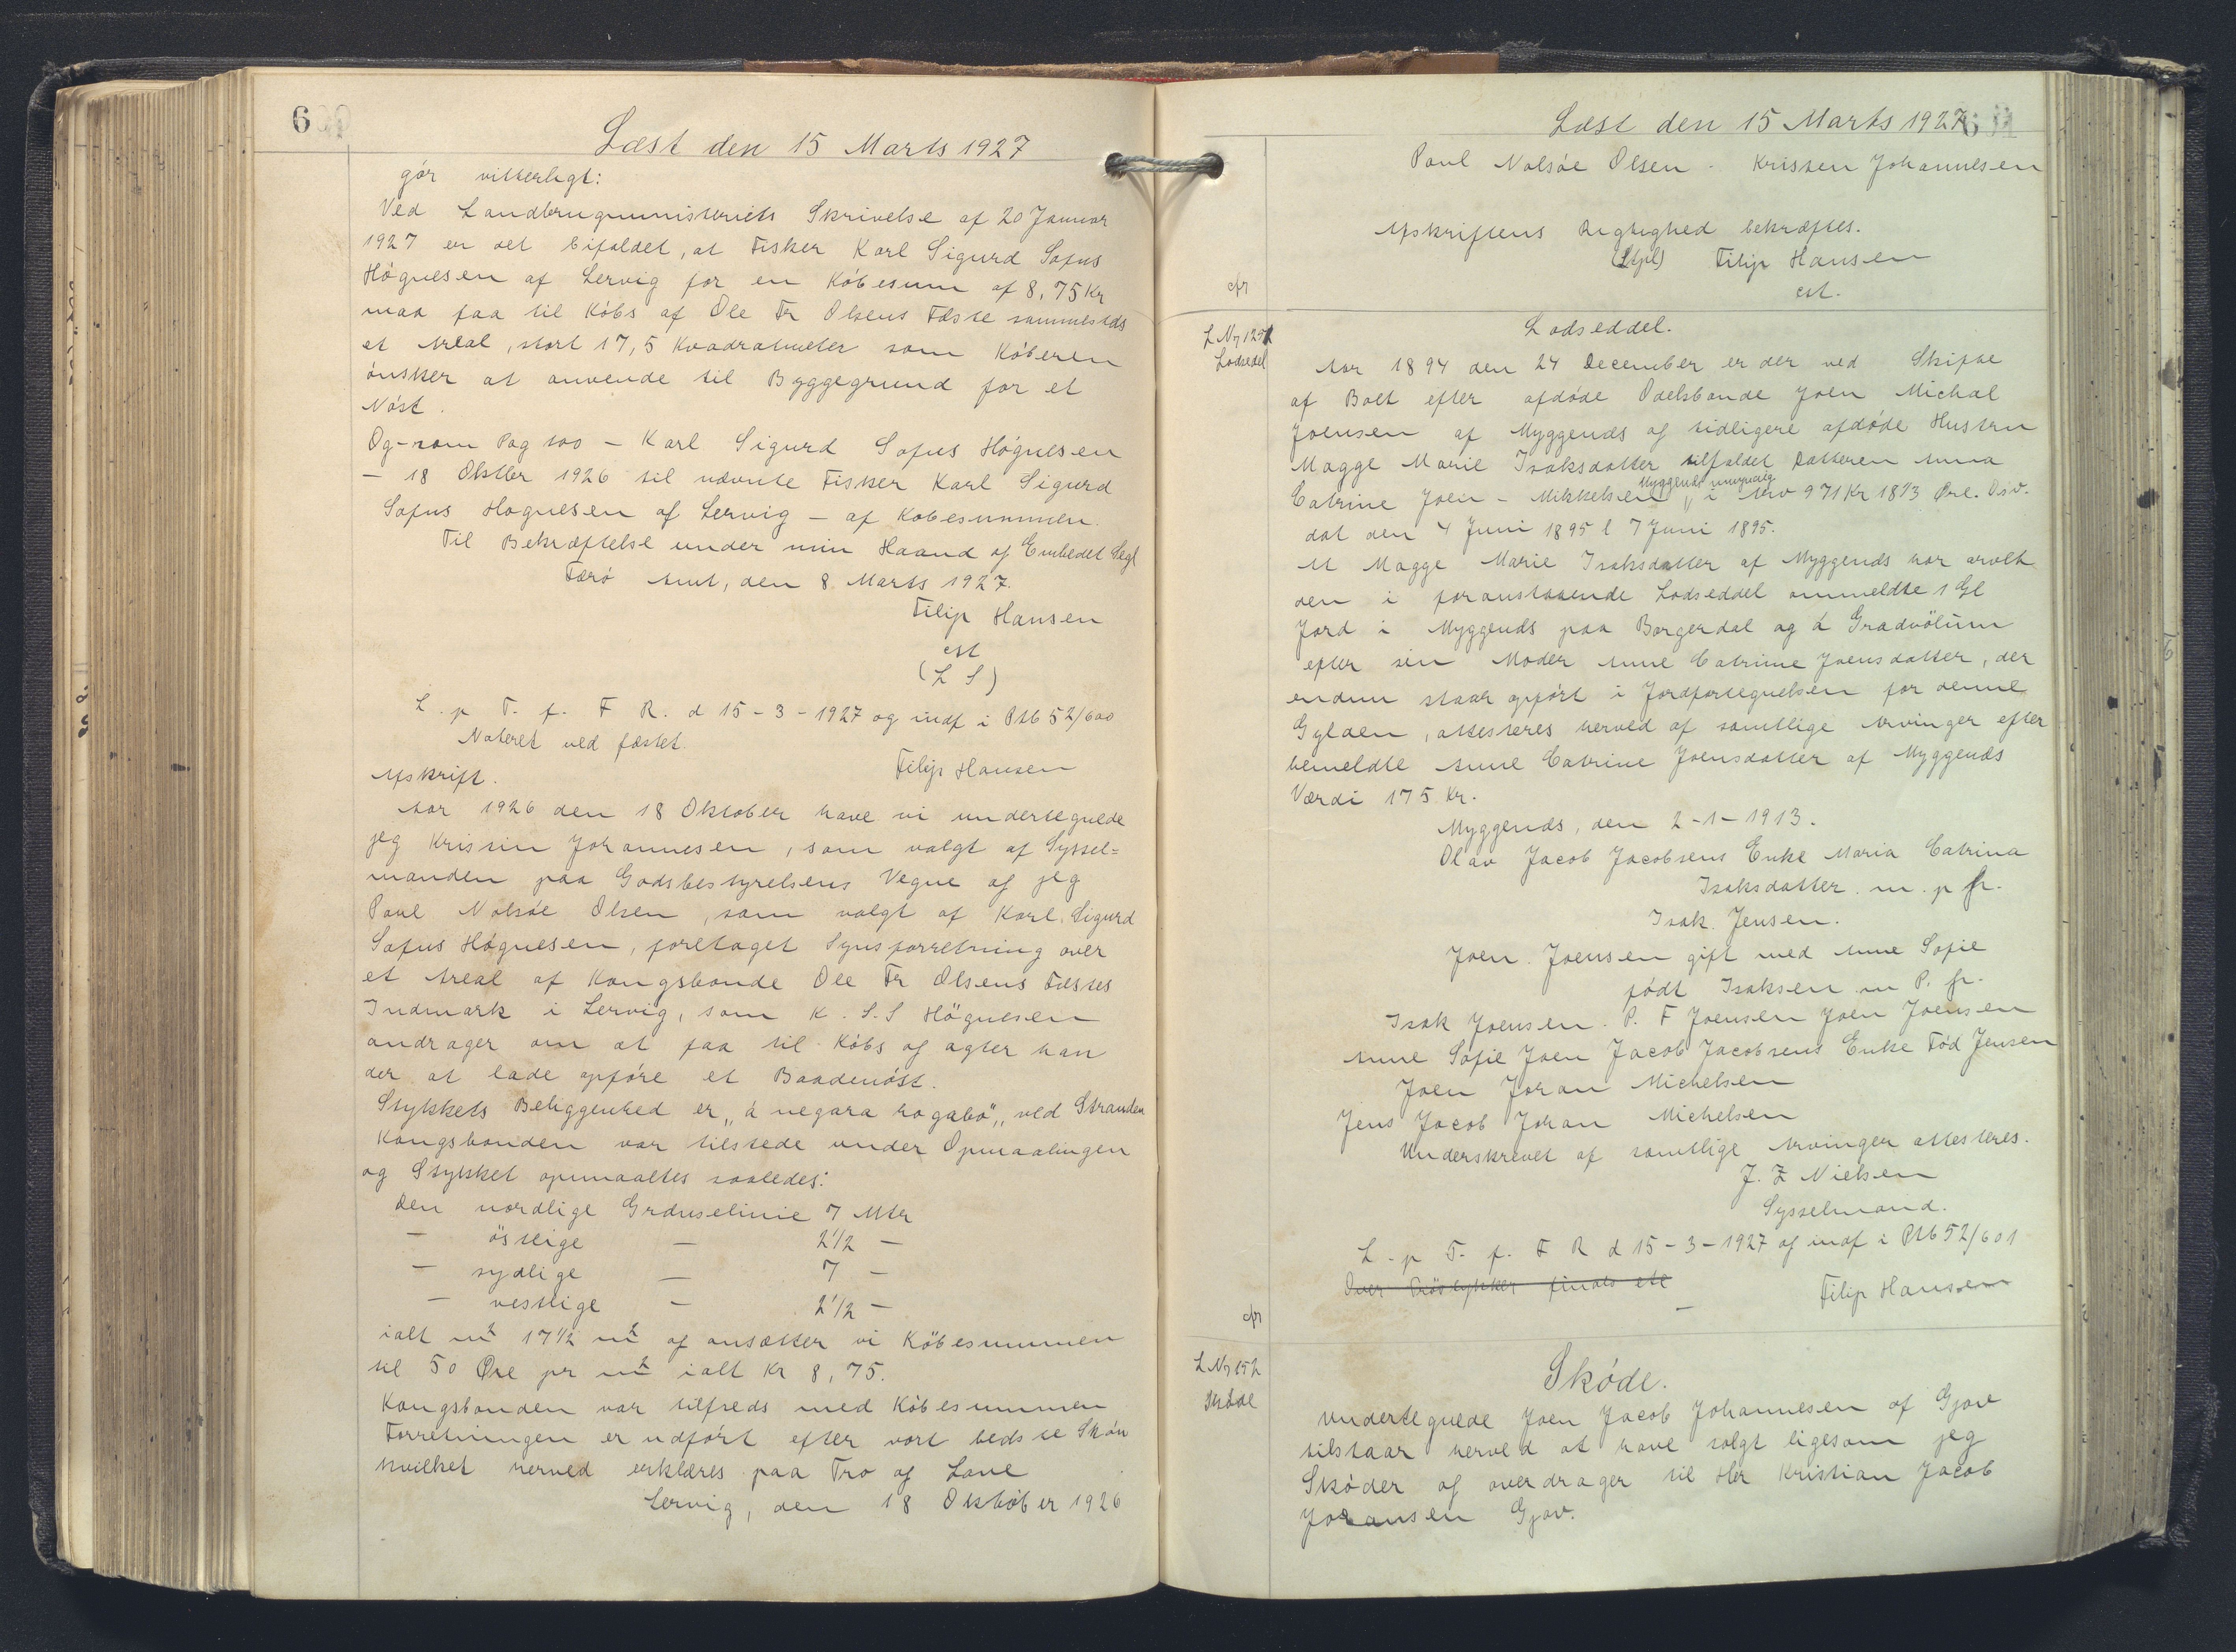 600
Læst den 15 Marts 1927
gør vitterligt:
Ved Landbrugministeriets Skrivelse af 20 Januar
1927 er det bifaldet, at Fisker Karl Sigurd Sofus
Høgnesen af Lervig for en Købesum af 8,75 Kr
maa faa til Købs af Ole Fr Olsens Fæste sammesteds
et Areal, stort 17,5 Kvadratmeter som Køberen
ønsker at anvende til Byggegrund for et
Nøst.
Og - som Pag 100 - Karl Sigurd Sofus Høgnesen
- 18 Oktbr 1926 til nævnte Fisker Karl Sigurd
Sofus Høgnesen af Lervig - af Købesummen.
Til Bekræftelse under min Haand og Embedet Segl
Færø Amt, den 8 Marts 1927.
Filip Hansen
cst
(L S)
L. p T. f. F R. d 15-3-1927 og indf i Ptb 52/600
Noteret ved fæstet.
Filip Hansen
Afskrift.
Aar 1926 den 18 Oktober have vi undertegnede
jeg Kristin Johannesen, som valgt af Syssel=
manden paa Godsbestyrelsens Vegne og jeg
Poul Nolsøe Olsen, som valgt af Karl Sigurd
Sofus Høgnesen, foretaget Synsforretning over
et Areal af Kongsbonde Ole Fr Olsens Fæstes
Indmark i Lervig, som K. S. S Högnesen
andrager om at faa til Købs og agter han
der at lade opføre et Baadenøst.
Stykkets Beliggenhed er „á negara rogabø„ ved Stranden
Kongsbonden var tilstede under Opmaalingen
og Stykket opmaaltes saaledes:
Den nordlige Grænselinie 7 Mtr
- östlige - 2 1/2 -
- sydlige - 7 -
- vestlige - 2 1/2 -
ialt m² 17 1/2 m² og ansætter vi Købesummen
til 50 Øre pr m² ialt Kr 8,75.
Kongsbonden var tilfreds med Købesummen
Forretningen er udført efter vort bedste Skøn
hvilket herved erklæres paa Tro og Love
Lervig, den 18 Oktober 1926
Læst den 15 Marts 1927
Poul Nolsøe Olsen - Kristen Johannesen
Afskriftens Rigtighed bekræftes.
(Stpl) Filip Hansen
cst.
cfr
L Nr 151
Lodsedel
Lodseddel.
Aar 1894 den 24 December er der ved Skifte
af Boet efter afdøde Odelsbonde Joen Michal
Joensen af Myggenæs og tidligere afdøde Hustru
Magge Marie Isaksdatter tilfaldet Datteren Anna
Catrine Joen - Mikkelsen Myggenæs i Arv 971 Kr 18 1/3 Øre. Osv.
dat den 4 Juni 1895 l 7 Juni 1895.
At Magge Marie Isaksdatter af Myggends har arvelt
den i foranstaaende Lodseddel ommeldte 1 Gl
Jord i Myggends paa Borgerdal og á Gradvölum
efter sin Moder Anne Catrine Joensdatter, der
endnu staar opført i Jordfortegnelsen for denne
Gylden, attesteres herved af samtlige Arvinger efter
bemeldte Anne Catrine Joensdatter af Myggends
Værdi 175 Kr.
Myggends, den 2-1-1913.
Olav Jacob Jacobsens Enke Maria Catrina
Isaksdatter m. p fr.
Isak Jensen.
Joen Joensen gift med Anne Sofie
født Isaksen m P. fr.
Isak Joensen. P. F Joensen Joen Joensen
Anne Sofie Joen Jacob Jacobsens Enke Fød Jensen
Joen Johan Michelsen
Jens Jacob Johan Michelsen
Underskrevet af samtlige Arvinger attesteres.
J. Z Nielsen
Sysselmand.
L. p T. f. F R d 15-3-1927 og indf i Ptb 52/601
Filip Hansen
cfr
L Nr 152
Skøde
Skøde.
Undertegnede Joen Jacob Johannesen af Gjov
tilstaar herved at have solgt ligesom jeg
Skøder og overdrager til Hr Kristian Jacob
Johansen Gjov.